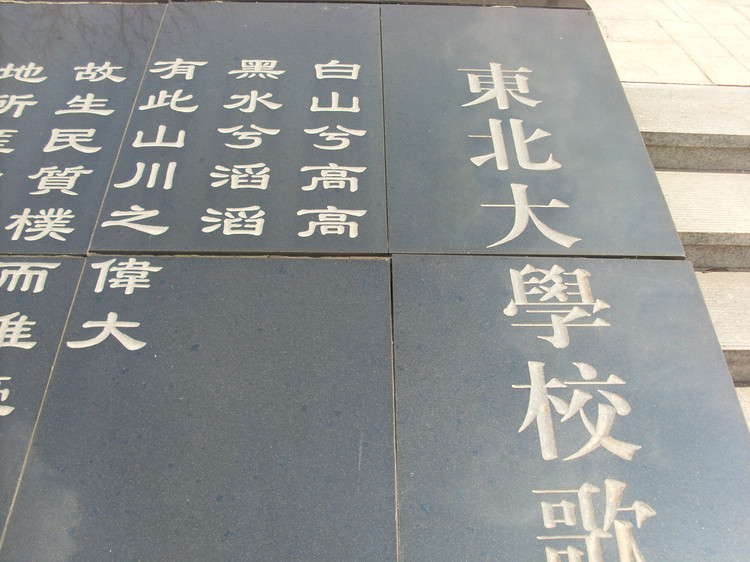 東北大學校歌
白山兮高高
黑水兮滔滔
有此山川之偉大
故生民質樸而
地所